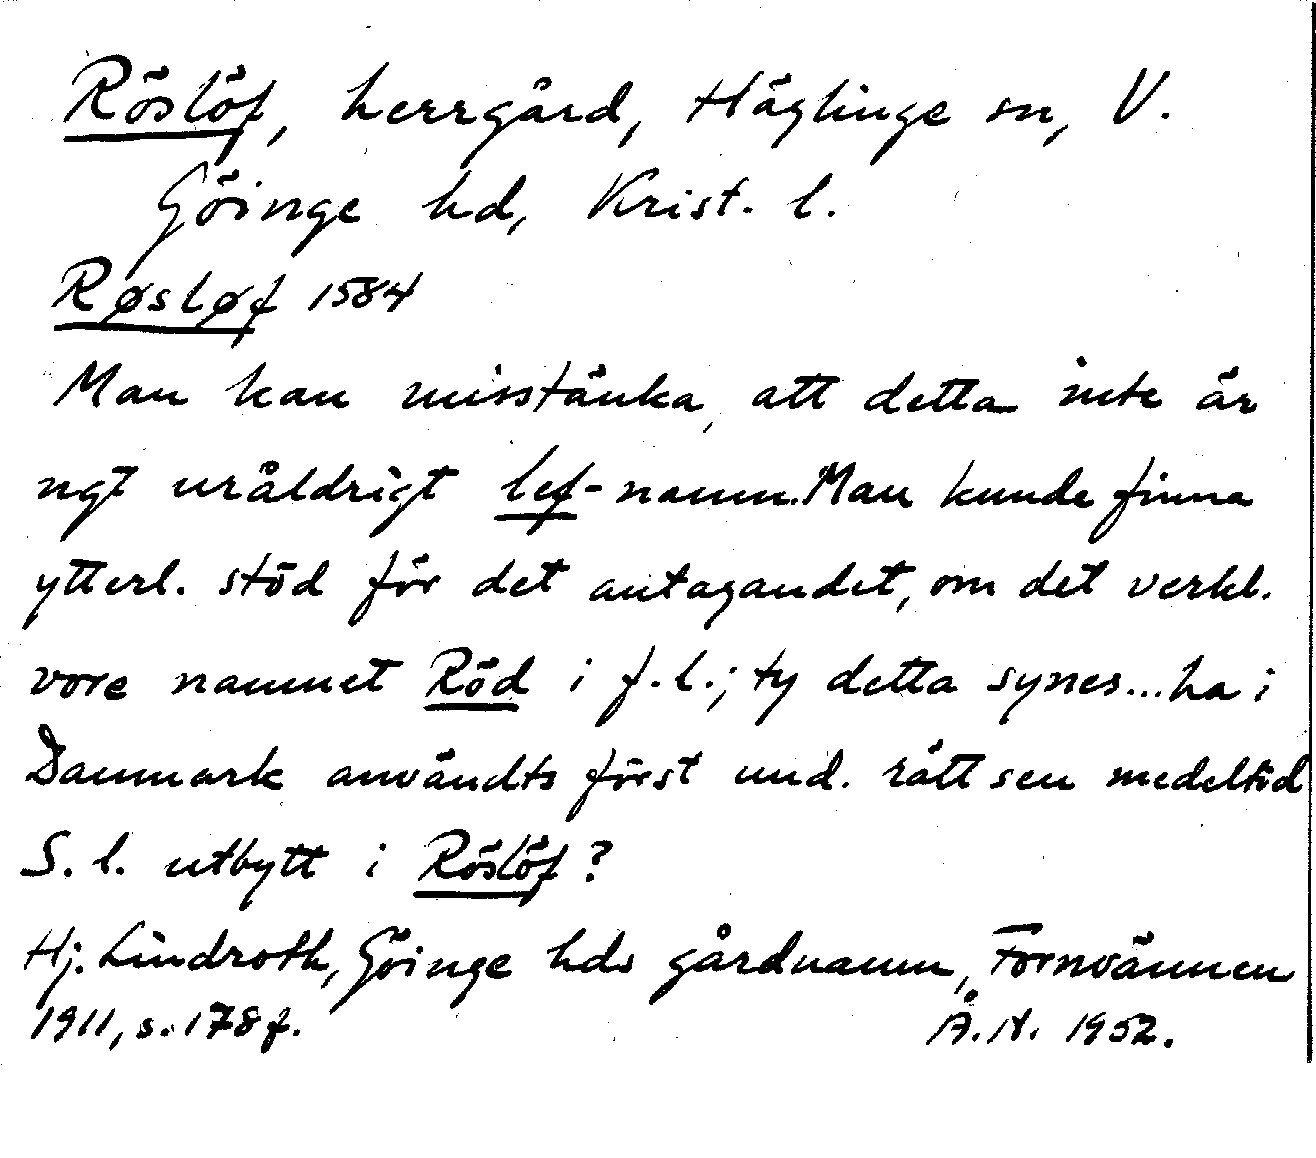 Röslöf, herrgård, Häglinge sn, V.
Göinge hd, Krist. l.
Røsløf 1584
Man kan misstänka, att detta inte är
ngt uråldrigt lef-namn. Man kunde finna
ytterl. stöd för det antagandet, om det verkl.
vore namnet Röd i f.l.; ty detta synes... ha i
Danmark användts först und. rätt sen medeltid
S. l. utbytt i Röslöf?
Hj. Lindroth, Göinge hds gårdnamn, Fornvännen
1911, s. 178 f. Å.H. 1952.